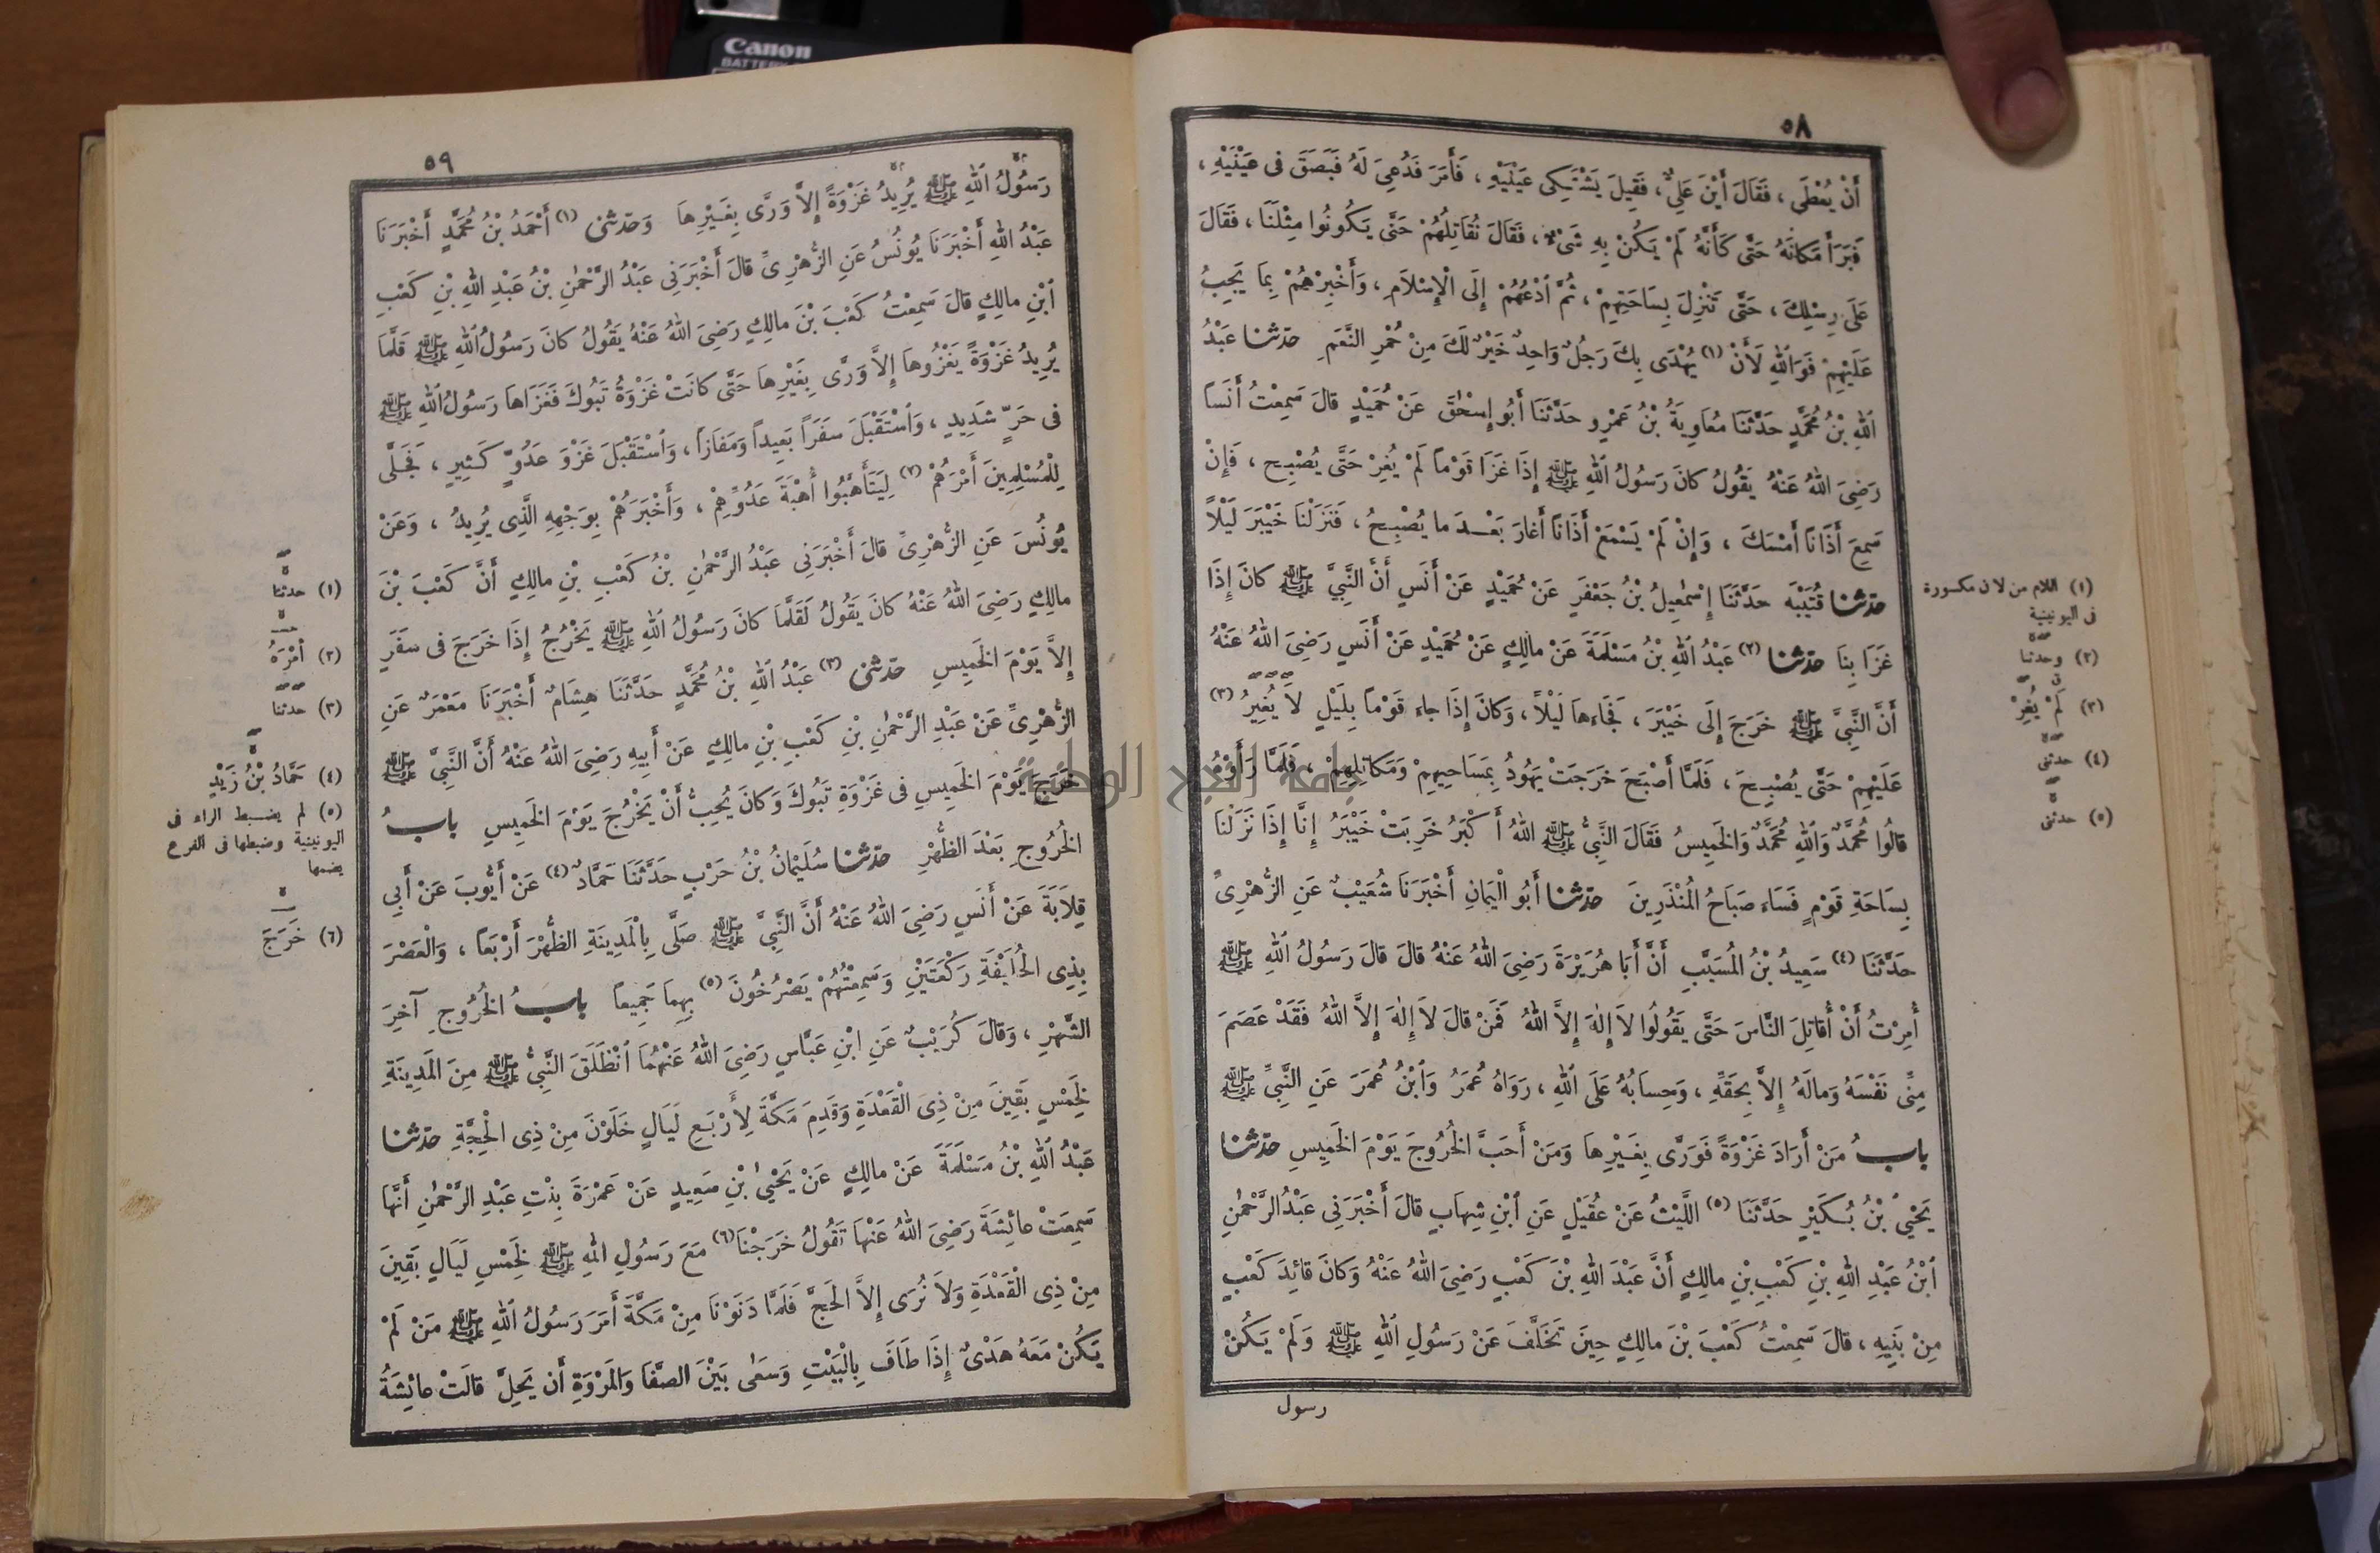 Canon
BATTERY
٥٨
أَنْ يُعْطَى ، فَقَالَ أَيْنَ عَلِيٌّ ، فَقِيلَ يَشْتَكِى عَيْنَيْهِ ، فَأَمَرَ فَدُعِىَ لَهُ فَبَصَقَ فى عَيْنَيْهِ ،
فَبَرَأَ مَكانَهُ حَتَّى كَأَنَّهُ لَمْ يَكُنْ بِهِ شَىْءٌ ، فَقَالَ نُقَاتِلُهُمْ حَتَّى يَكُونُوا مِثْلَنَا ، فَقَالَ
عَلَى رِسْلِكَ ، حَتَّى تَنْزِلَ بِسَاحَتِهِمْ ، ثُمَّ ٱدْعُهُمْ إِلَى الْإِسْلاَمِ ، وَأَخْبِرْهُمْ بِمَا يَجِبُ
عَلَيْهِمْ فَوَاللهِ لَأَنْ (١) يُهْدَى بِكَ رَجُلٌ وَاحِدٌ خَيْرٌ لَكَ مِنْ حُمْرِ النَّعَمِ حدّثنا عَبْدُ
اللهِ بْنُ مُحَمَّدٍ حَدَّثَنَا مُعَاوِيَةُ بْنُ عَمْرٍو حَدَّثَنَا أَبُو إِسْحٰقَ عَنْ حُمَيْدٍ قالَ سَمِعْتُ أَنَسًا
رَضِىَ اللهُ عَنْهُ يَقُولُ كانَ رَسُولُ اللهِ ﷺ إِذَا غَزَا قَوْماً لَمْ يُغِرْ حَتَّى يُصْبِحَ ، فَإِنْ
سَمِعَ أَذَانًا أَمْسَكَ ، وَإِنْ لَمْ يَسْمَعْ أَذَانًا أَغارَ بَعْدَ ما يُصْبِحُ ، فَنَزَلْنَا خَيْبَرَ لَيْلاً
حدّثنا قُتَيْبَةُ حَدَّثَنَا إِسْمٰعِيلُ بْنُ جَعْفَرٍ عَنْ حُمَيْدٍ عَنْ أَنَسٍ أَنَّ النَّبِيَّ ﷺ كانَ إِذَا
غَزَا بِنَا حدّثنا (٢) عَبْدُ اللهِ بْنُ مَسْلَمَةَ عَنْ مالِكٍ عَنْ حُمَيْدٍ عَنْ أَنَسٍ رَضِىَ اللهُ عَنْهُ
أَنَّ النَّبِيَّ ﷺ خَرَجَ إِلَى خَيْبَرَ ، فَجَاءَهَا لَيْلاً ، وَكانَ إِذَا جاء قَوْماً بِلَيْلٍ لاَ يُغِيرُ (٣)
عَلَيْهِمْ حَتَّى يُصْبِحَ ، فَلَمَّا أَصْبَحَ خَرَجَتْ يَهُودُ بِمَسَاحِيهِمْ وَمَكاتِلِهِمْ ، فَلَمَّا رَأَوْهُ
قالُوا مُحَمَّدٌ وَاللهِ مُحَمَّدٌ وَالخَمِيسُ فَقَالَ النَّبِيُّ ﷺ اللهُ أَكْبَرُ خَرِبَتْ خَيْبَرُ إِنَّا إِذَا نَزَلْنَا
بِسَاحَةِ قَوْمٍ فَسَاءَ صَبَاحُ المُنْذَرِينَ حدّثنا أَبُو الْيَمَانِ أَخْبَرَنَا شُعَيْبٌ عَنِ الزُّهْرِىِّ
حَدَّثَنَا (٤) سَعِيدُ بْنُ المُسَيَّبِ أَنَّ أَبَا هُرَيْرَةَ رَضِىَ اللهُ عَنْهُ قالَ قالَ رَسُولُ اللهِ ﷺ
أُمِرْتُ أَنْ أُقاتِلَ النَّاسَ حَتَّى يَقُولُوا لاَ إِلٰهَ إِلاَّ اللهُ فَمَنْ قالَ لاَ إِلٰهَ إِلاَّ اللهُ فَقَدْ عَصَمَ
مِنِّى نَفْسَهُ وَمالَهُ إِلاَّ بِحَقِّهِ ، وَحِسَابُهُ عَلَى اللهِ ، رَوَاهُ عُمَرُ وَابْنُ عُمَرَ عَنِ النَّبِيِّ ﷺ
بابُ مَنْ أَرَادَ غَزْوَةً فَوَرَّى بِغَيْرِهَا وَمَنْ أَحَبَّ الخُرُوجَ يَوْمَ الخَمِيسِ حدّثنا
يَحْيىٰ بْنُ بُكَيْرٍ حَدَّثَنَا (٥) اللَّيْثُ عَنْ عُقَيْلٍ عَنِ ابْنِ شِهَابٍ قالَ أَخْبَرَنِى عَبْدُ الرَّحْمٰنِ
ابْنُ عَبْدِ اللهِ بْنِ كَعْبِ بْنِ مالِكٍ أَنَّ عَبْدَ اللهِ بْنَ كَعْبٍ رَضِىَ اللهُ عَنْهُ وَكانَ قائِدَ كَعْبٍ
مِنْ بَنِيهِ ، قالَ سَمِعْتُ كَعْبَ بْنَ مالِكٍ حِينَ تَخَلَّفَ عَنْ رَسُولِ اللهِ ﷺ وَلَمْ يَكُنْ
رسول
(١) اللام من لأن مكسورة
فى اليونينية
(٢) وحدثنا
(٣) لَمْ يُغِرْ
(٤) حدثنى
(٥) حدثنى
٥٩
رَسُولُ اللهِ ﷺ يُرِيدُ غَزْوَةً إِلاَّ وَرَّى بِغَيْرِهَا وَحدّثنى (١) أَحْمَدُ بْنُ مُحَمَّدٍ أَخْبَرَنَا
عَبْدُ اللهِ أَخْبَرَنَا يُونُسُ عَنِ الزُّهْرِىِّ قالَ أَخْبَرَنِى عَبْدُ الرَّحْمٰنِ بْنُ عَبْدِ اللهِ بْنِ كَعْبِ
ابْنِ مالِكٍ قالَ سَمِعْتُ كَعْبَ بْنَ مالِكٍ رَضِىَ اللهُ عَنْهُ يَقُولُ كانَ رَسُولُ اللهِ ﷺ قَلَّمَا
يُرِيدُ غَزْوَةً يَغْزُوهَا إِلاَّ وَرَّى بِغَيْرِهَا حَتَّى كانَتْ غَزْوَةُ تَبُوكَ فَغَزَاهَا رَسُولُ اللهِ ﷺ
فى حَرٍّ شَدِيدٍ ، وَاسْتَقْبَلَ سَفَرًا بَعِيداً وَمَفَازاً ، وَاسْتَقْبَلَ غَزْوَ عَدُوٍّ كَثِيرٍ ، فَجَلَّى
لِلْمُسْلِمِينَ أَمْرَهُمْ (٢) لِيَتَأَهَّبُوا أُهْبَةَ عَدُوِّهِمْ ، وَأَخْبَرَهُمْ بِوَجْهِهِ الَّذِى يُرِيدُ ، وَعَنْ
يُونُسَ عَنِ الزُّهْرِىِّ قالَ أَخْبَرَنِى عَبْدُ الرَّحْمٰنِ بْنُ كَعْبِ بْنِ مالِكٍ أَنَّ كَعْبَ بْنَ
مالِكٍ رَضِىَ اللهُ عَنْهُ كانَ يَقُولُ لَقَلَّمَا كانَ رَسُولُ اللهِ ﷺ يَخْرُجُ إِذَا خَرَجَ فى سَفَرٍ
إِلاَّ يَوْمَ الخَمِيسِ حدّثنى (٣) عَبْدُ اللهِ بْنُ مُحَمَّدٍ حَدَّثَنَا هِشَامٌ أَخْبَرَنَا مَعْمَرٌ عَنِ
الزُّهْرِىِّ عَنْ عَبْدِ الرَّحْمٰنِ بْنِ كَعْبِ بْنِ مالِكٍ عَنْ أَبِيهِ رَضِىَ اللهُ عَنْهُ أَنَّ النَّبِيَّ ﷺ
خَرَجَ يَوْمَ الخَمِيسِ فى غَزْوَةِ تَبُوكَ وَكانَ يُحِبُّ أَنْ يَخْرُجَ يَوْمَ الخَمِيسِ بابُ
الخُرُوجِ بَعْدَ الظُّهْرِ حدّثنا سُلَيْمَانُ بْنُ حَرْبٍ حَدَّثَنَا حَمَّادٌ (٤) عَنْ أَيُّوبَ عَنْ أَبِى
قِلاَبَةَ عَنْ أَنَسٍ رَضِىَ اللهُ عَنْهُ أَنَّ النَّبِيَّ ﷺ صَلَّى بِالْمَدِينَةِ الظُّهْرَ أَرْبَعًا ، وَالْعَصْرَ
بِذِى الْحُلَيْفَةِ رَكْعَتَيْنِ وَسَمِعْتُهُمْ يَصْرُخُونَ (٥) بِهِمَا جَمِيعاً بابُ الخُرُوجِ آخِرَ
الشَّهْرِ ، وَقالَ كُرَيْبٌ عَنِ ابْنِ عَبَّاسٍ رَضِىَ اللهُ عَنْهُمَا انْطَلَقَ النَّبِيُّ ﷺ مِنَ المَدِينَةِ
لِخَمْسٍ بَقِينَ مِنْ ذِى الْقَعْدَةِ وَقَدِمَ مَكَّةَ لِأَرْبَعِ لَيَالٍ خَلَوْنَ مِنْ ذِى الْحِجَّةِ حدّثنا
عَبْدُ اللهِ بْنُ مَسْلَمَةَ عَنْ مالِكٍ عَنْ يَحْيىٰ بْنِ سَعِيدٍ عَنْ عَمْرَةَ بِنْتِ عَبْدِ الرَّحْمٰنِ أَنَّهَا
سَمِعَتْ عائِشَةَ رَضِىَ اللهُ عَنْهَا تَقُولُ خَرَجْنَا (٦) مَعَ رَسُولِ اللهِ ﷺ لِخَمْسِ لَيَالٍ بَقِينَ
مِنْ ذِى الْقَعْدَةِ وَلاَ نُرَى إِلاَّ الحَجَّ فَلَمَّا دَنَوْنَا مِنْ مَكَّةَ أَمَرَ رَسُولُ اللهِ ﷺ مَنْ لَمْ
يَكُنْ مَعَهُ هَدْىٌ إِذَا طَافَ بِالْبَيْتِ وَسَعٰى بَيْنَ الصَّفَا وَالمَرْوَةِ أَن يَحِلَّ قالَتْ عائِشَةُ
(١) حدثنا
(٢) أَمْرَهُ
(٣) حدثنا
(٤) حَمَّادُ بْنُ زَيْدٍ
(٥) لم يضبط الراء فى
اليونينية وضبطها فى الفرع
بضمها
(٦) خَرَجَ
جامعة النجاح الوطنية